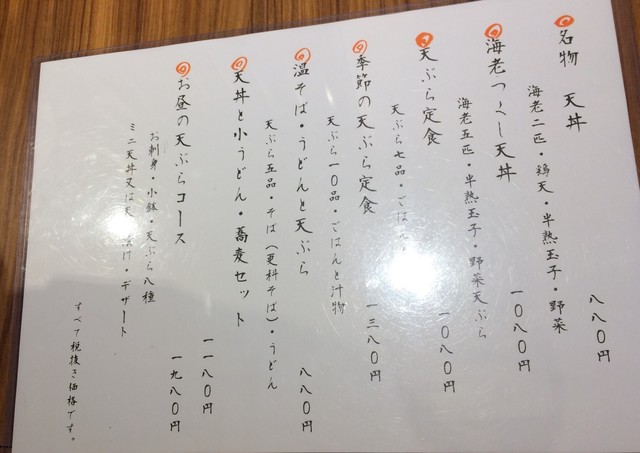 名物 天丼
海老二匹・鶏天・半熟玉子・野菜
八八〇円
海老づくし天丼
海老五匹・半熟玉子・野菜天ぷら
一〇八〇円
天ぷら定食
天ぷら七品・ごはん
一〇八〇円
季節の天ぷら定食
天ぷら一〇品・ごはんと汁物
一三八〇円
温そば・うどんと天ぷら
天ぷら五品・そば(更科そば)・うどん
八八〇円
天丼と小うどん・蕎麦セット
一一八〇円
お昼の天ぷらコース
お刺身・小鉢・天ぷら八種
ミニ天丼又は天 漬け・デザート
一九八〇円
すべて税抜き価格です。